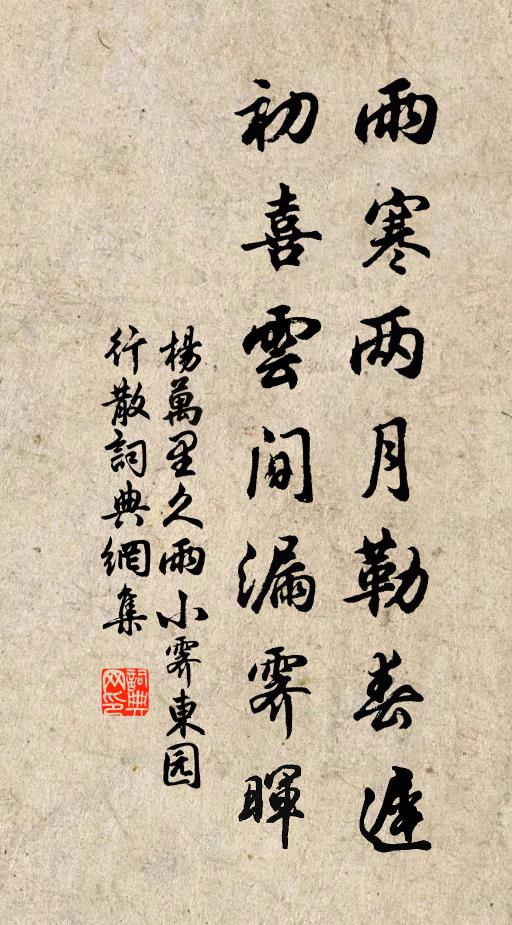 雨寒两月勒春遲
初喜雲間漏霽暉
楊萬里久雨小霽東园
行散詞典網集
詞典
网印